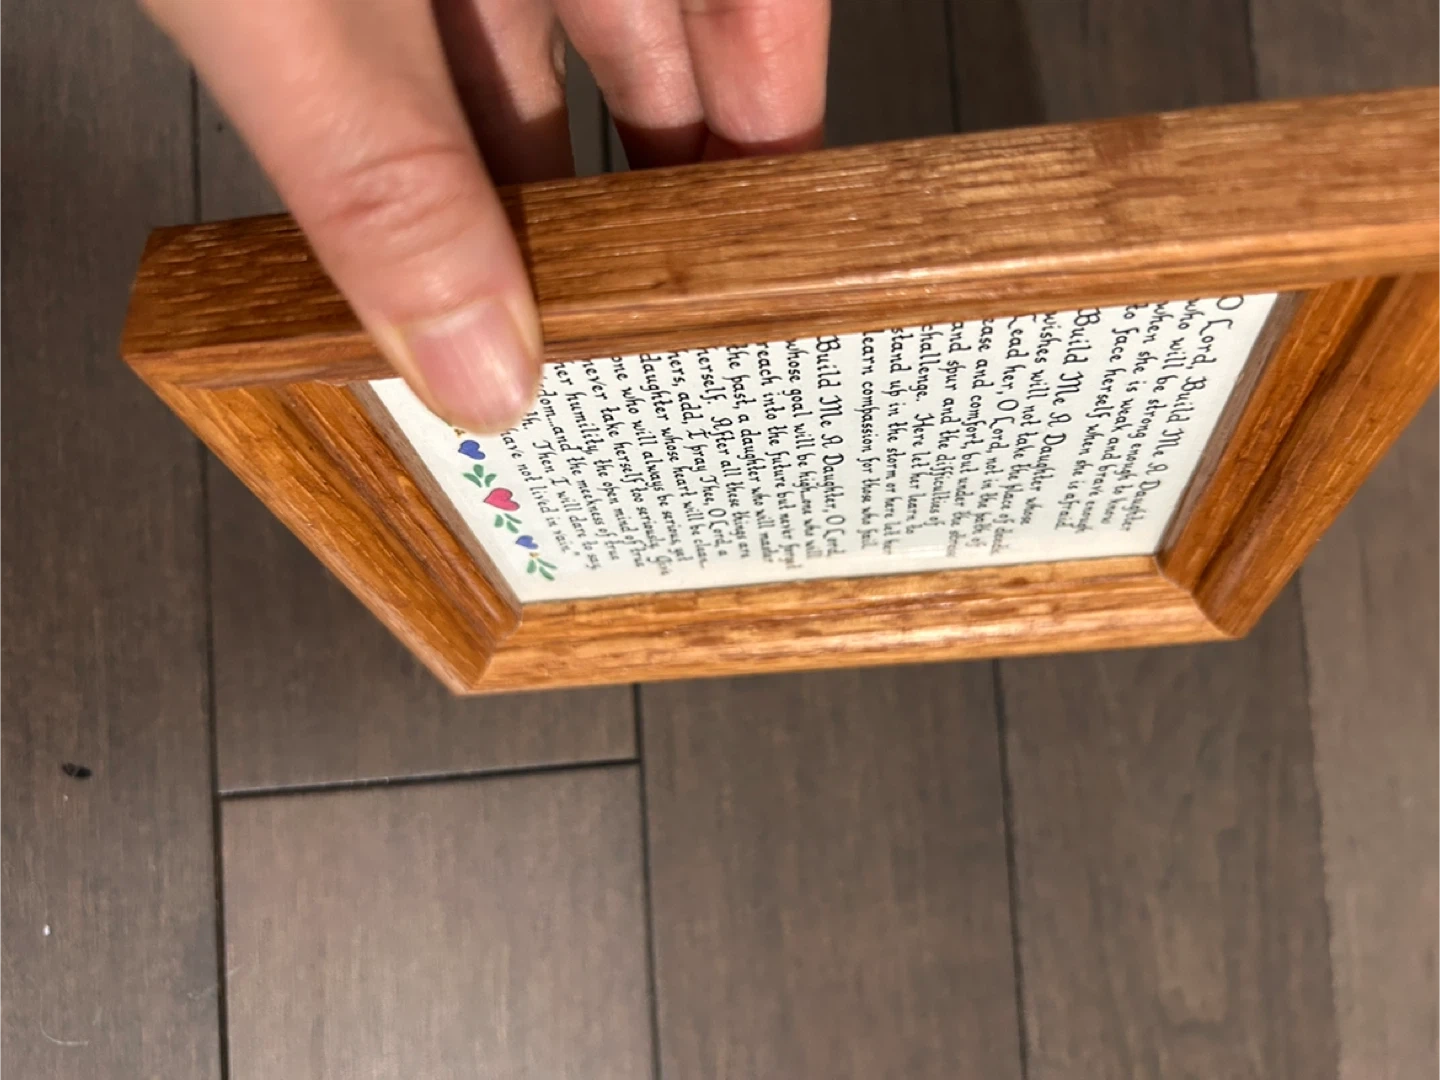 O Lord, Build Me A Daughter
who will be strong enough to know
when she is weak and brave enough
to face herself when she is afraid.
Build Me A Daughter whose
wishes will not take the place of deeds.
Lead her, O Lord, not in the path of
ease and comfort, but under the stress
and spur and the difficulties of
challenge. Here let her learn to
stand up in the storm or here let her
learn compassion for those who fail.
Build Me A Daughter, O Lord
whose goal will be high...one who will
reach into the future but never forget
the past, a daughter who will master
herself. After all these things are
hers, add, I pray Thee, O Lord, a
daughter whose heart will be clean..
one who will always be serious, yet
never take herself too seriously. Give
her humility, the open mind of true
and the meekness of true
Then I will dare to say,
have not lived in vain."